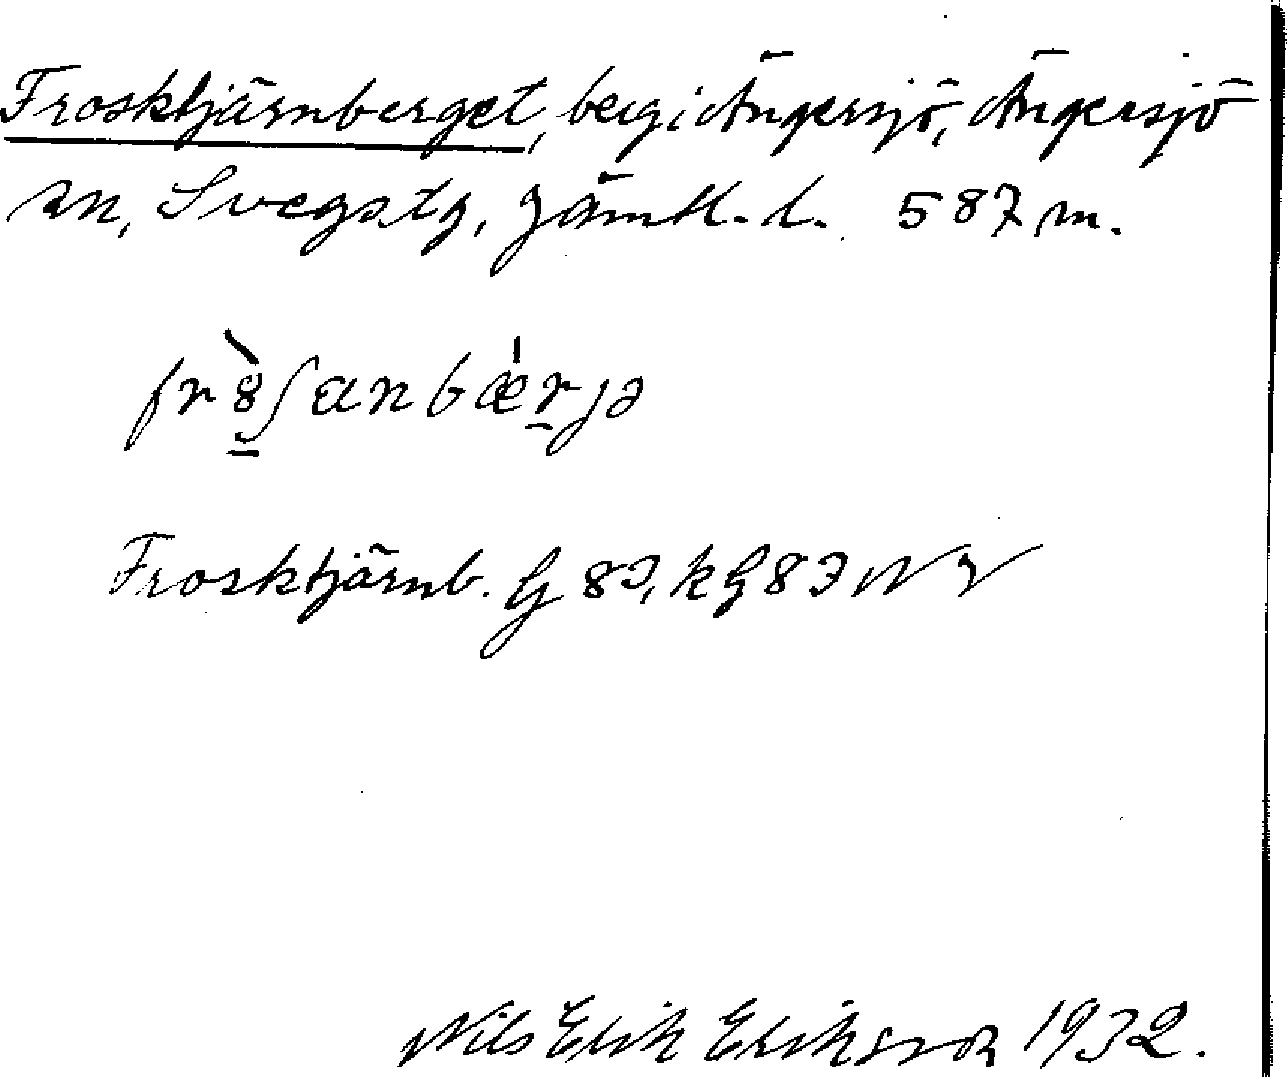 Frosktjärnberget, berg i Ängersjö, Ängersjö
sn, Svegs tg, Jämtl. l. 587 m.
frò̱ʃanbæ̍ṟjə
Frosktjärnb. G 83, kG 83 NV
Nils Erik Eriksson 1932.